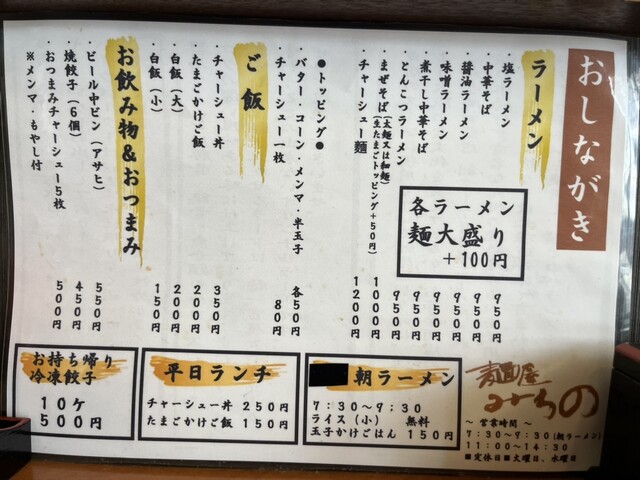 おしながき
ラーメン
・塩ラーメン 950円
・中華そば 950円
・醤油ラーメン 950円
・味噌ラーメン 950円
・煮干し中華そば 950円
・とんこつラーメン 950円
・まぜそば(太麺又は細麺)(生たまごトッピング+50円) 1000円
・チャーシュー麺 1200円
各ラーメン
麺大盛り
+100円
●トッピング●
・バター・コーン・メンマ・半玉子 各50円
・チャーシュー一枚 80円
ご飯
・チャーシュー丼 350円
・たまごかけご飯 200円
・白飯(大) 200円
・白飯(小) 150円
お飲み物&おつまみ
・ビール中ビン(アサヒ) 550円
・焼餃子(6個) 450円
・おつまみチャーシュー5枚 500円
※メンマ・もやし付
麺屋
みちの
〜営業時間〜
7:30〜9:30(朝ラーメン)
11:00〜14:30
■定休日■火曜日、水曜日
朝ラーメン
7:30〜9:30
ライス(小) 無料
玉子かけごはん 150円
平日ランチ
チャーシュー丼 250円
たまごかけご飯 150円
お持ち帰り
冷凍餃子
10ケ
500円